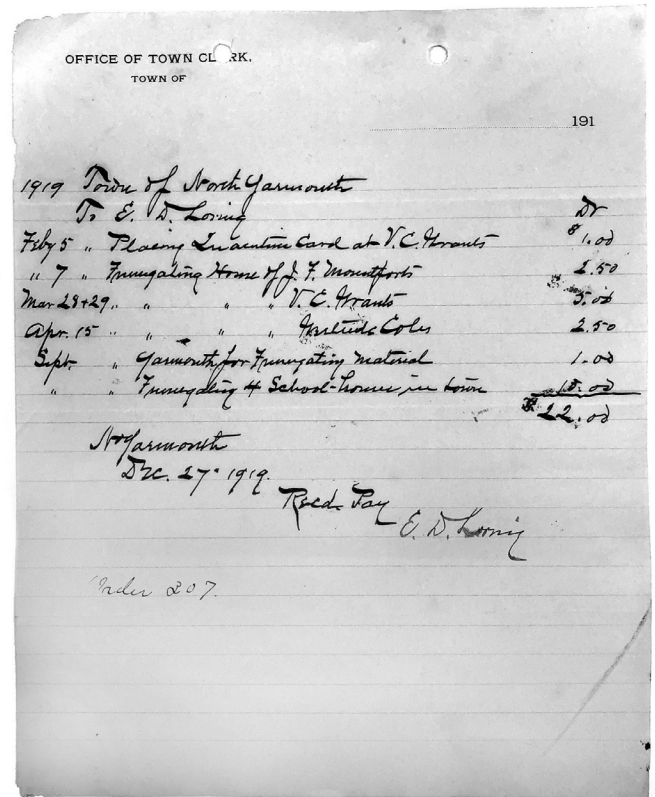 OFFICE OF TOWN CLERK,
TOWN OF
191
1919 Town of North Yarmouth
To E. D. Loring Dr
Feby 5 " Placing Quarantine Card at V. C. Grants $1.00
" 7 " Fumegating House of J. F. Mountforts 2.50
Mar 28+29 " " " " V. C. Grants 5.00
Apr. 15 " " " " Coles 2.50
Sept. " Yarmouth for Fumegating Material 1.00
" " Fumegating 4 School-houses in town 10.00
$22.00
No Yarmouth
Dec. 27" 1919.
Recd. Pay
E. D. Loring
Order 207.